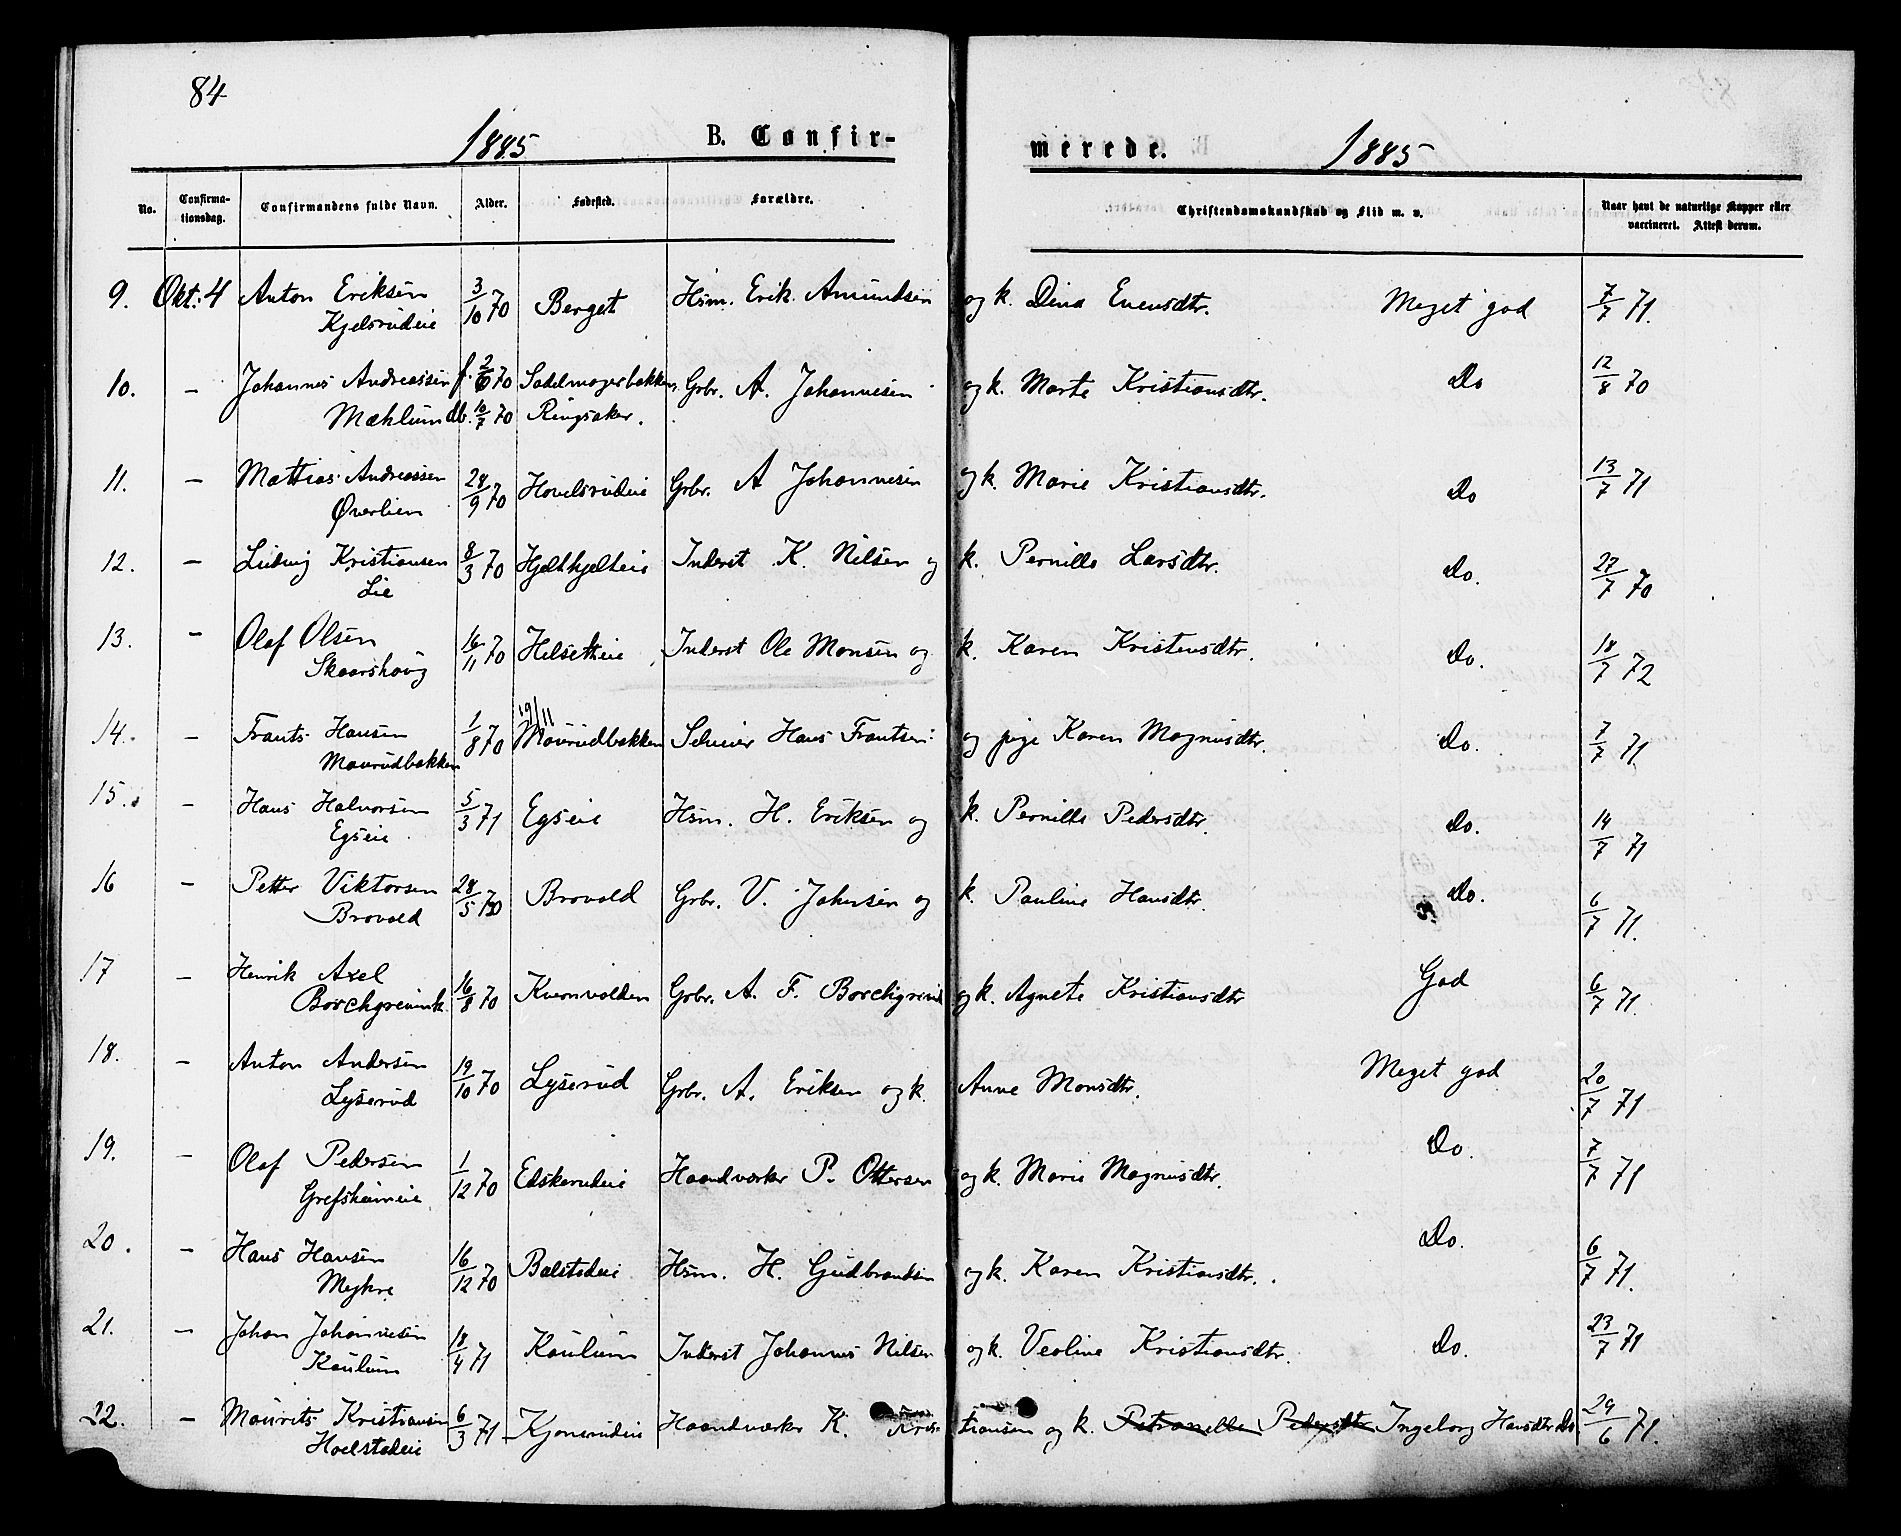 84
1885 B. Confir- merede. 1885
No. Confirma-tionsdag. Confirmandens fulde Navn. Alder. Fødested. Forældre. Christendomskundskab og Flid m. v. Naar havt de naturlige Kopper eller vaccineret. Attest derom.
9. Okt. 4 Anton Eriksen 3/10 70 Berget Hsm. Erik Amundsen og k. Dina Evensdtr. Meget god 7/7 71.
Kjelsrudeie
10. - Johannes Andreassen f. 2/6 70 Sadelmagerbakken, Grbr. A. Johannesen og k. Marte Kristiansdtr. Do 12/8 70
Mæhlum db. 10/7 70 Ringsaker.
11. - Mattias Andreassen 28/9 70 Hovelsrudeie Grbr. A Johannesen og k. Marie Kristiansdtr. Do 13/7 71
Øverlien
12. - Ludvig Kristiansen 8/3 70 Hjelthjelteie Inderst K. Nilsen og k. Pernille Larsdtr. Do. 27/7 70
Lie
13. - Olaf Olsen 16/11 70 Helsetteie Inderst Ole Monsen og k. Karen Kristensdtr. Do. 18/7 72
Skaarshoug
19/11
14. - Frants Hansen 1/8 70 Maurudbakken Hans Frantsen og pige Karen Magnusdtr. Do. 7/7 71.
Maurudbakken
15. - Hans Halvorsen 5/3 71 Egseie Hsm. H. Eriksen og k. Pernille Pedersdtr. Do. 14/7 71
Egseie
16 - Petter Viktorsen 28/5 70 Brovold Grbr. V. Johnsen og k. Pauline Hansdtr. Do. 6/7 71.
Brovold
17 - Henrik Axel 16/8 70 Kvernvolden Grbr. A. F. Borchgrevink og k. Agnete Kristiansdtr God 6/7 71.
Borchgrevink
18. - Anton Andersen 19/10 70 Lyserud Grbr. A. Eriksen og k. Anne Monsdtr. Meget god 20/7 71
Lyserud
19. - Olaf Pedersen 1/12 70 Edskerudeie Haandverker P. Ottersen og k. Marie Magnusdtr. Do. 7/7 71
Grefsheimeie
20. - Hans Hansen 16/12 70 Balstadeie Hsm. H. Gudbrandsen og k. Karen Kristiansdtr. Do. 6/7 71.
Myhre
21. - Johan Johannesen 18/4 71 Kaulum Inderst Johannes Nilsen og k. Veoline Kristiansdtr. Do. 23/7 71
Kaulum
22. - Maurits Kristiansen 6/3 71 Kjonerudeie Haandverker K. Kristiansen og k. Petronelle Pedersdtr Ingeborg Hansdtr Do. 29/6 71.
Hoelstadeie